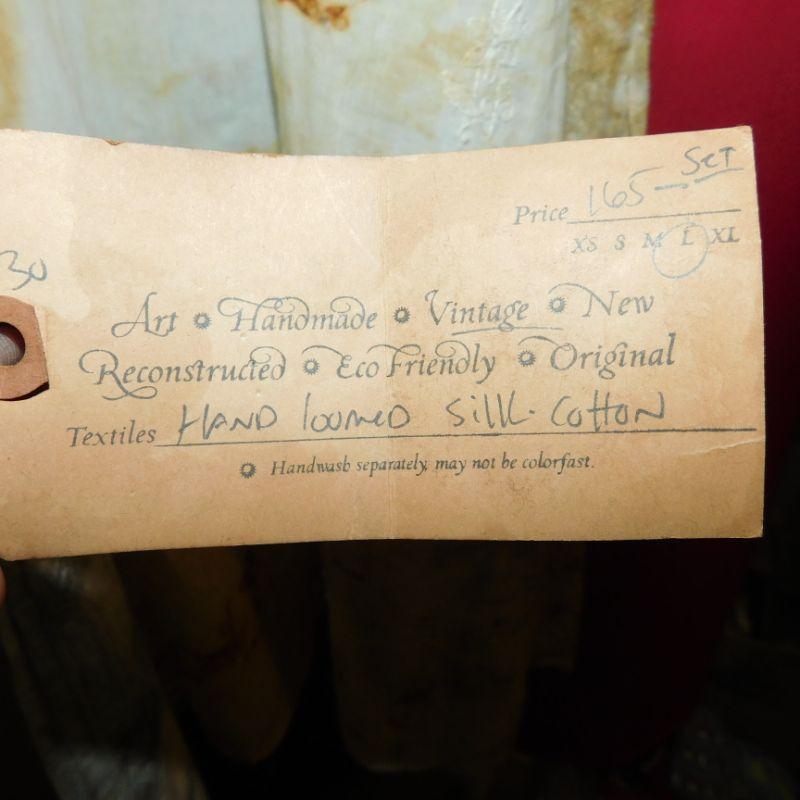 Price 165 — SET
XS S M L XL
30
Art Handmade Vintage New
Reconstructed Eco Friendly Original
Textiles HAND loomed Silk - Cotton
Handwash separately, may not be colorfast.